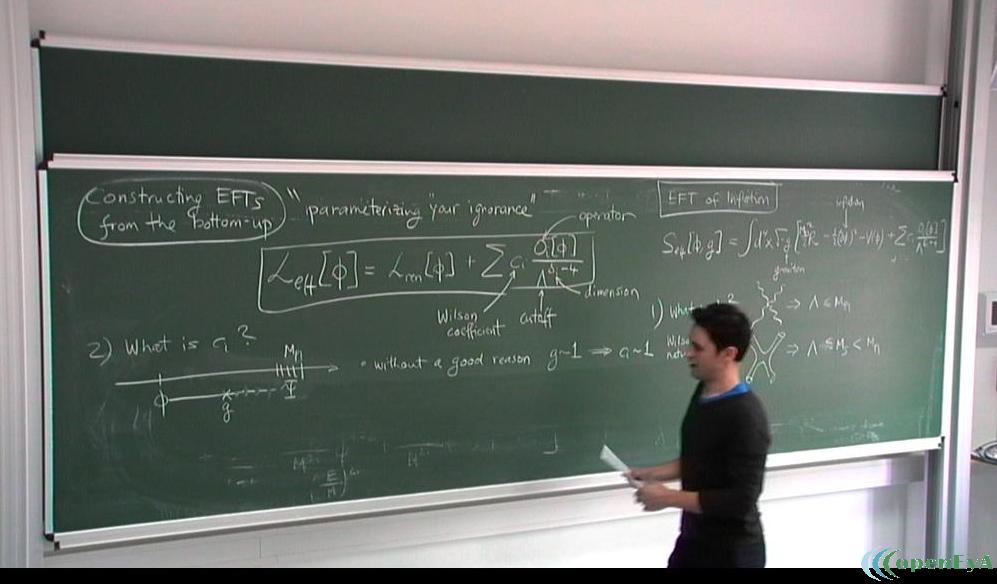 Constructing EFTs
from the bottom-up
"parameterizing "your ignorance"
operator
L_eff[φ] = L_ren[φ] + Σ c_i O_i[φ] / Λ^{δ_i-4}
Wilson
coefficient
cutoff
dimension
2) What is c_i ?
M_pl
φ
g
Ψ
• without a good reason g~1 ⇒ c_i~1
EFT of Inflation
inflaton
S_eff[φ,g] = ∫d⁴x√-g [M_pl²/2 R - ½(∂φ)² - V(φ) + Σ c_i O_i[φ]/Λ^{δ_i-4}]
graviton
1) What ?
⇒ Λ ≲ M_pl
⇒ Λ ≲ M_s < M_pl
openEyA